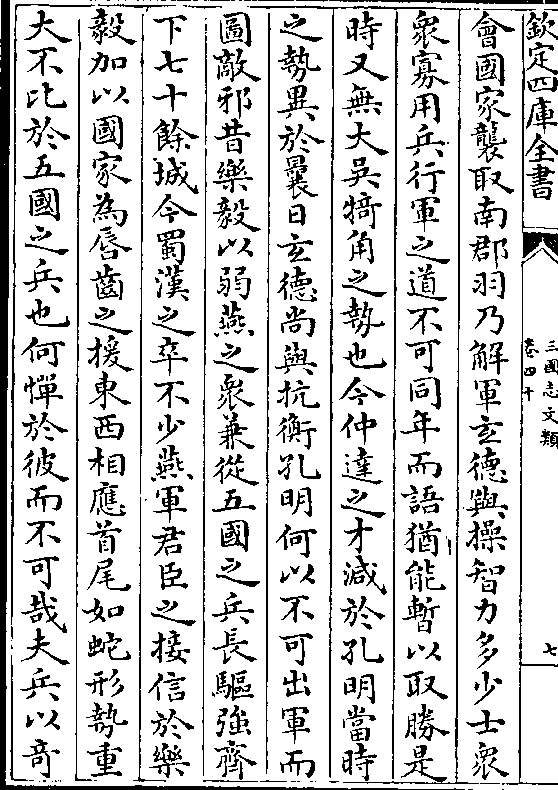 欽定四庫全書
三國志文類
卷四十
七
會國家襲取南郡羽乃解軍玄德與操智力多少士衆
衆寡用兵行軍之道不可同年而語猶能暫以取勝是
時又無大吳犄角之埶也今仲達之才減於孔明當時
之勢異於曩日玄德尚與抗衡孔明何以不可出軍而
圖敵邪昔樂毅以弱燕之衆兼從五國之兵長驅強齊
下七十餘城今蜀漢之卒不少燕軍君臣之接信於樂
毅加以國家為唇齒之援東西相應首尾如蛇形勢重
大不比於五國之兵也何憚於彼而不可哉夫兵以竒